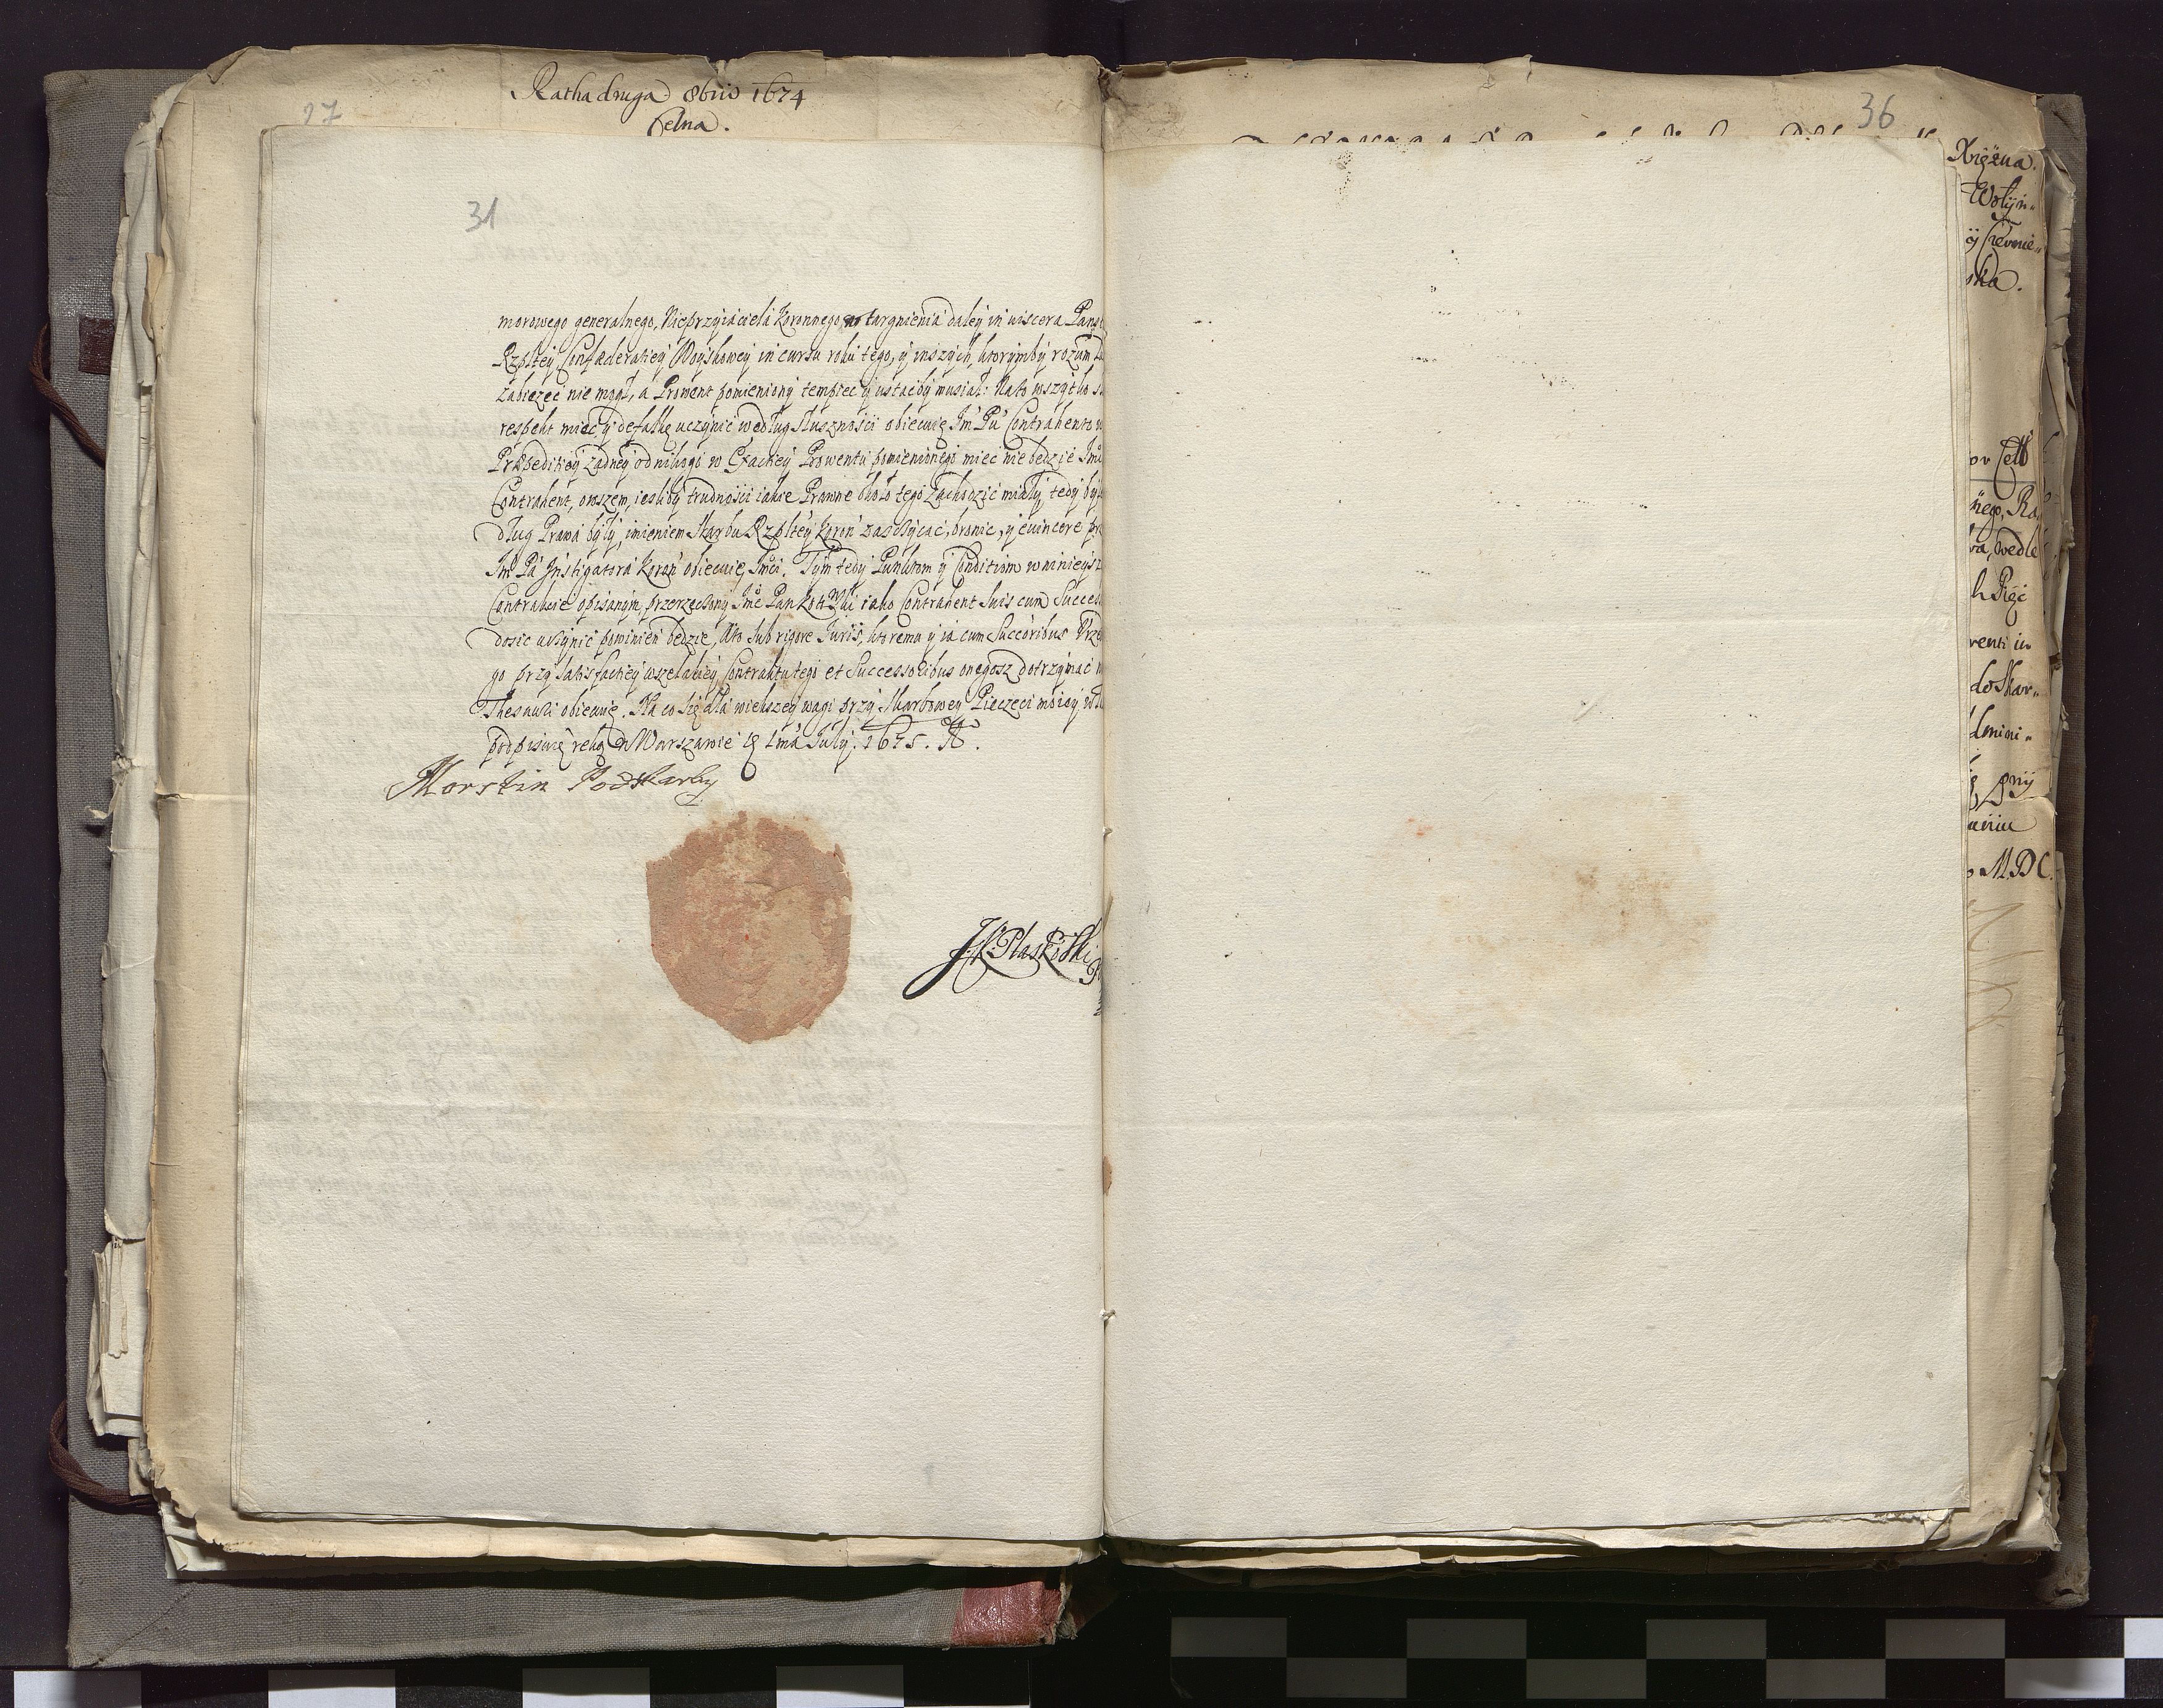 Ratha druga 8bris 1674
Celna.
27
31
morowego generalnego, Nieprzyiaciela Koronnego wtargnienia daley in viscera Pańs
Rzpltey Confaederatiey Woyskowey in cursu roku tego, y inszych, ktorymby rozum
zabiezec nie mogł, a Prowent pomieniony tempiec y ustacby musiał: Na to wszytko
respekt miec y defalkę uczynic według słusznosci obiecuię Im Pu Contrahentowi
Praepeditiey zadney od nikogo w Exactiey Prowentu pomienionego miec nie bedzie Imć
Contrahent, owszem, iesliby trudnosci iakie Prawne około tego zachodzić miały, tedy
dług Prawa były, imieniem Skarbu Rzpltey Koron zasczycać, bronic, y evincere
Im Pa Instigatora Koron obiecuię Imci. Tym tedy Punktom y Conditiom w ninieysz
Contrakcie opisanym, przerzeczony Imć Pan Kotwski iako Contrahent suis cum Success
dosic uczynić powinien bedzie, A to sub rigore Iuris, ktorema y ia cum Succoribus
go przy satisfactiey wszelakiey Contraktu tego et Successoribus onegosz dotrzymać
Thesauri obiecuię. Na co się dla wiekszey wagi przy Skarbowey Pieczęci moiey
podpisuię ręką w Warszawie D 1ma July. 1675. A.
Morstin Podskarby
JK Plaskoski
36
Xiężna.
Wołyn-
y Czernie-
ska.
or Cell
nego, Ra
wa, wedle
h Pięć
venti in
do Skar-
dmini-
przy
aniu
o M.DC.